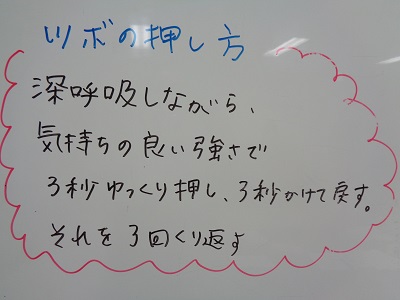 ツボの押し方
深呼吸しながら、
気持ちの良い強さで
3秒ゆっくり押し、3秒かけて戻す。
それを3回くり返す